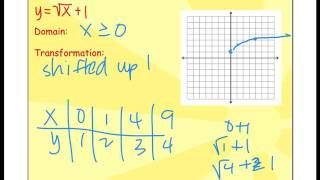 y=√x+1
Domain: x ≥ 0
Transformation:
shifted up 1
x | 0 | 1 | 4 | 9
y | 1 | 2 | 3 | 4
0+1
√1+1